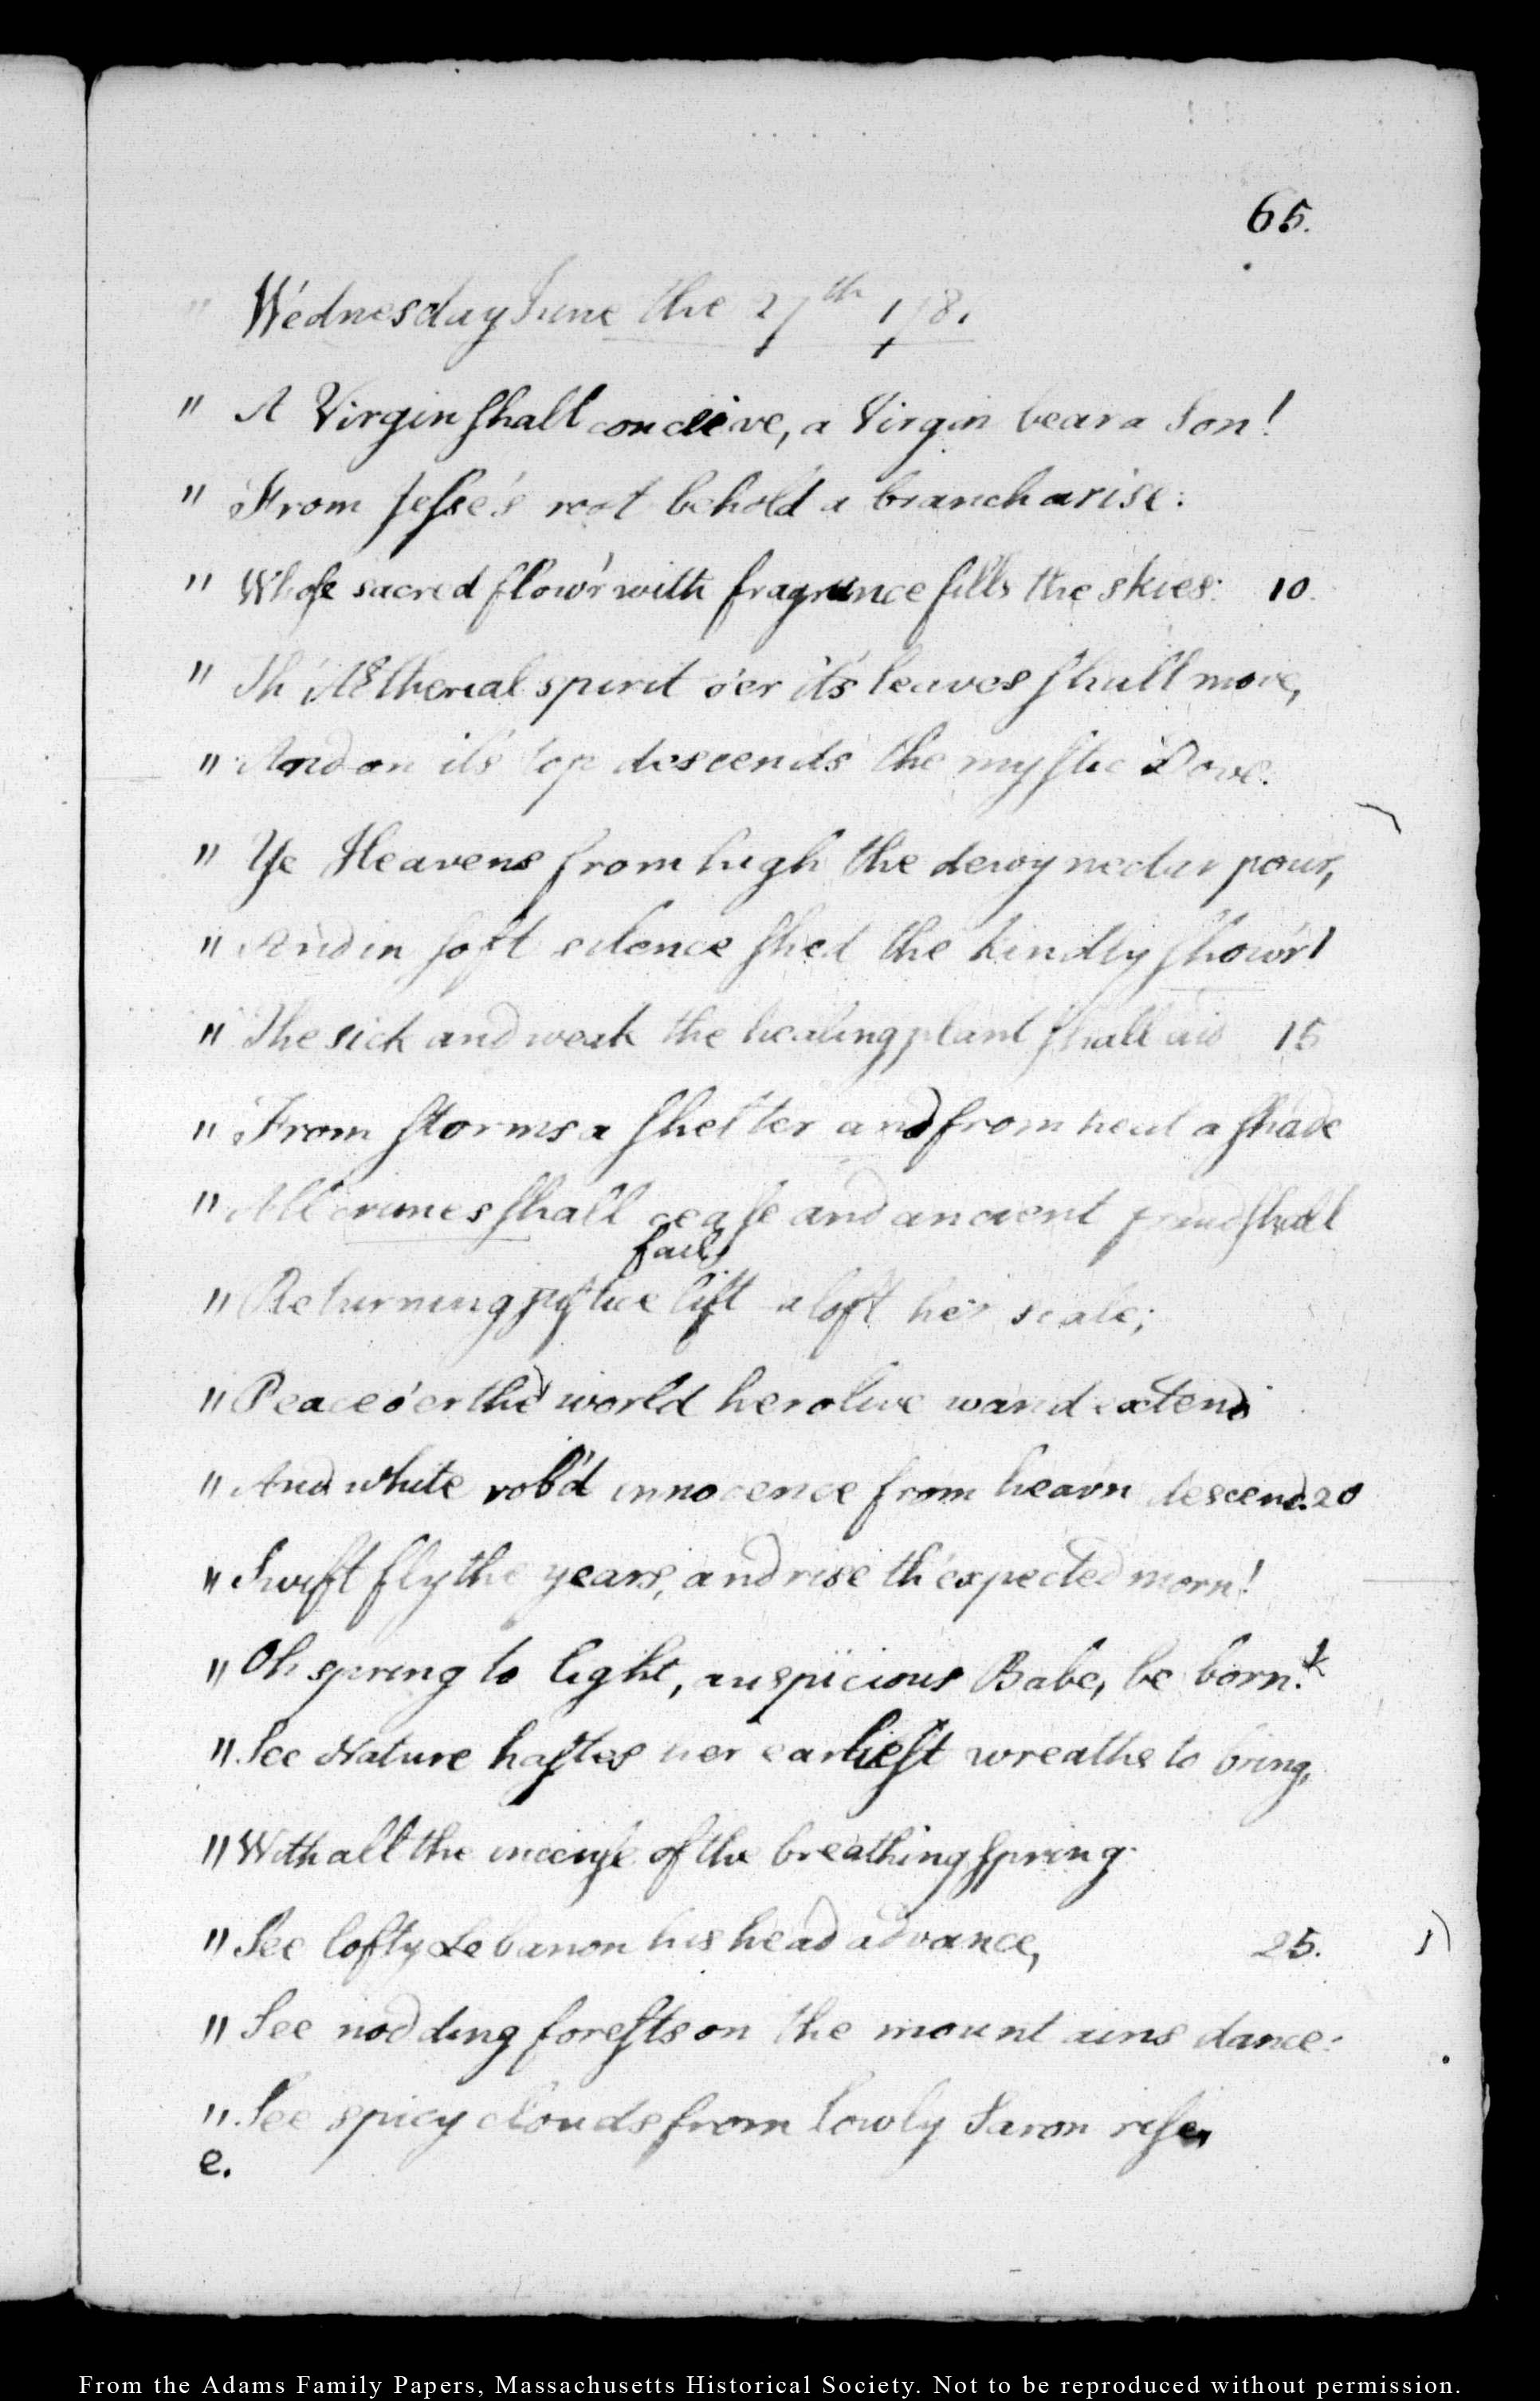 65.
" Wednesday June the 27th 1781
" A Virgin shall conceive, a Virgin bear a Son!
" From Jesse's root behold a branch arise:
" Whose sacred flow'r with fragrance fills the skies: 10.
" Th' Ætherial spirit o'er it's leaves shall move,
" And on it's top descends the mystic Dove.
" Ye Heavens from high the dewy nectar pour,
" And in soft silence shed the kindly show'r!
" The sick and weak the healing plant shall aid 15
" From storms a shelter and from heat a shade
" All crimes shall cease and ancient fraud shall
fail,
" Returning justice lift aloft her scale;
" Peace o'er the world her olive wand extend
" And white rob'd innocence from heav'n descend. 20
" Swift fly the years, and rise th' expected morn!
" Oh spring to light, auspicious Babe, be born!
" See Nature hastes her earliest wreaths to bring,
" With all the incense of the breathing spring.
" See lofty Lebanon his head advance, 25.
" See nodding forests on the mountains dance:
" See spicy clouds from lowly Saron rise,
e.
From the Adams Family Papers, Massachusetts Historical Society. Not to be reproduced without permission.